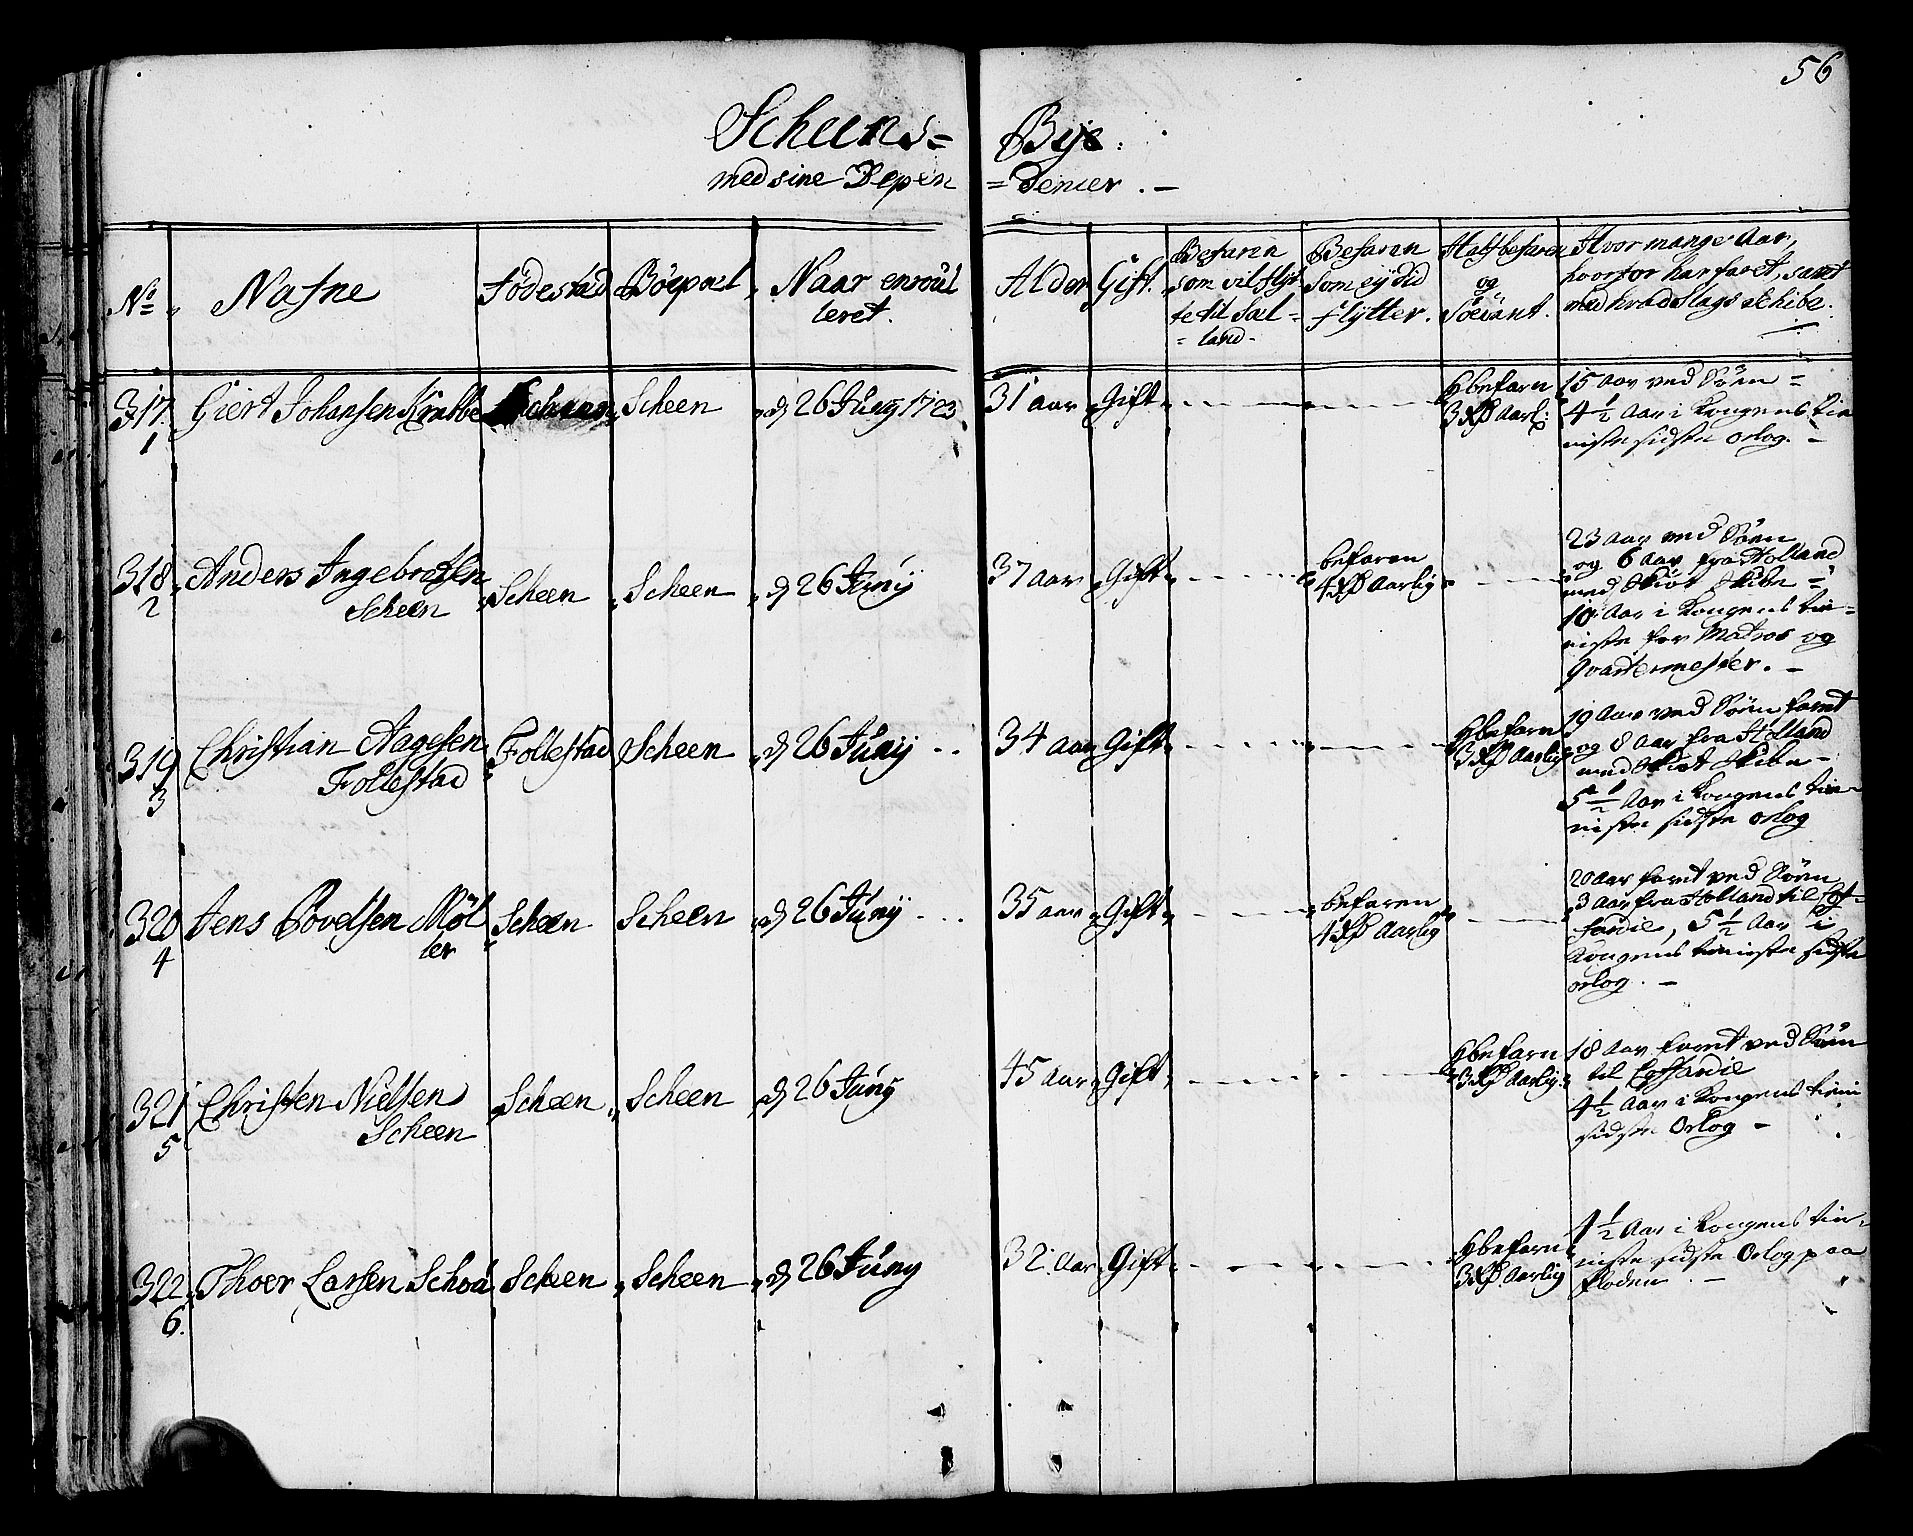 56
Scheens= Bye:
med sine Depen =dencier . –
No Nafne Födested Böepæl Naar enroul
leret.
Alder Gift. Befaren
som vil flyt
te til Sæl=
=land.
Befaren
som ey vid
flytter.
Halfbefaren
og
Söevant.
Hvor mange Aar,
hvorfor har faret, samt
med hvad Slags Schibe.
317. Giert Johansen Krabbe Scheen Scheen d 26 Juny 1723 31 aar Gift
1
Hbefarn
3 Rd Aarl:
15 Aar ved Söen =
4 1/2 Aar i Kongens tie
niste sidste Orlog. –
318. Anders Ingebretsen Scheen Scheen d 26 Junij 37 aar Gift
2 Scheen
befaren
4 Rd Aarlig
23 Aar ved Söen
og 6 Aar fra Holland
med Skiöt Skibe =
10 Aar i Kongens tie=
niste for Matros og
Qvartermester. –
319 Christian Aagesen Follestad Scheen d 26 Junij . . 34 aar Gift
3 Follestad
Hbefarn
3 Rd Aarlig
19 Aar ved Söen faret
og 8 Aar fra Holland
med Skiöt Skibe –
5 1/2 Aar i Kongens tie
niste sidste Orlog
320 Jens Povelsen Möl Scheen Scheen d 26 Junij . . . 35 aar Gift
4 ler
befaren
4 Rd Aarlig
20 Aar faret ved Söen
3 Aar fra Holland til
fardie, 5 1/2 Aar i
Kongens tieniste sidste
orlog. –
321 Christen Nielsen Scheen Scheen d 26 Juny 45 aar Gift
5 Scheen
Hbefarn
3 Rd Aarlig
18 Aar faret ved Söen
til Cofardie
4 1/2 Aar i Kongens tieni
sidste Orlog –
322 Thoer Larsen Schoü Scheen Scheen d 26 Juny 32. Aar Gift
6.
Hbefarn
3 Rd. Aarlig
4 1/2 Aar i Kongens tie=
niste sidste Orlog paa
floden . –